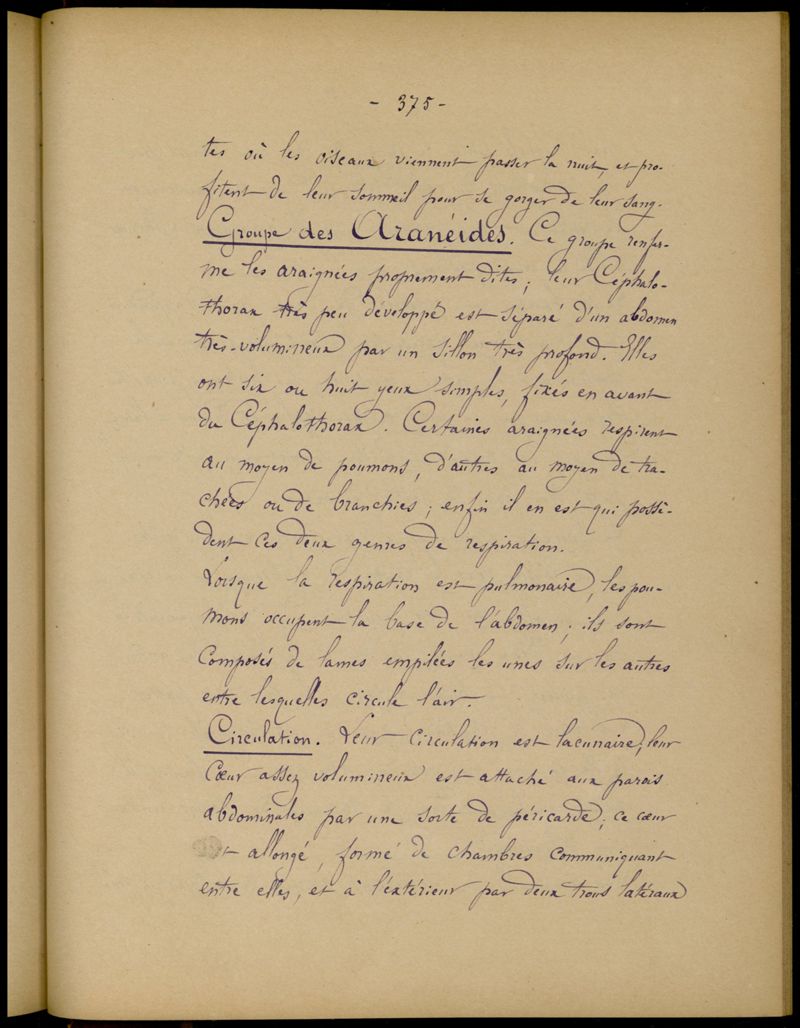 - 375 -
tes où les oiseaux viennent passer la nuit, et pro-
fitent de leur sommeil pour se gorger de leur sang.
Groupe des Aranéides. Ce groupe renfer-
me les araignées proprement dites; leur Céphalo-
thorax très peu développé est séparé d'un abdomen
très-volumineux par un sillon très profond. Elles
ont six ou huit yeux simples, fixés en avant
du Céphalothorax. Certaines araignées respirent
au moyen de poumons, d'autres au moyen de tra-
chées ou de branchies; enfin il en est qui possè-
dent ces deux genres de respiration.
Lorsque la respiration est pulmonaire, les pou-
mons occupent la base de l'abdomen; ils sont
composés de lames empilées les unes sur les autres
entre lesquelles circule l'air.
Circulation. Leur circulation est lacunaire, leur
Cœur assez volumineux est attaché aux parois
abdominales par une sorte de péricarde; ce cœur
est allongé, formé de chambres communiquant
entre elles, et à l'extérieur par deux trous latéraux